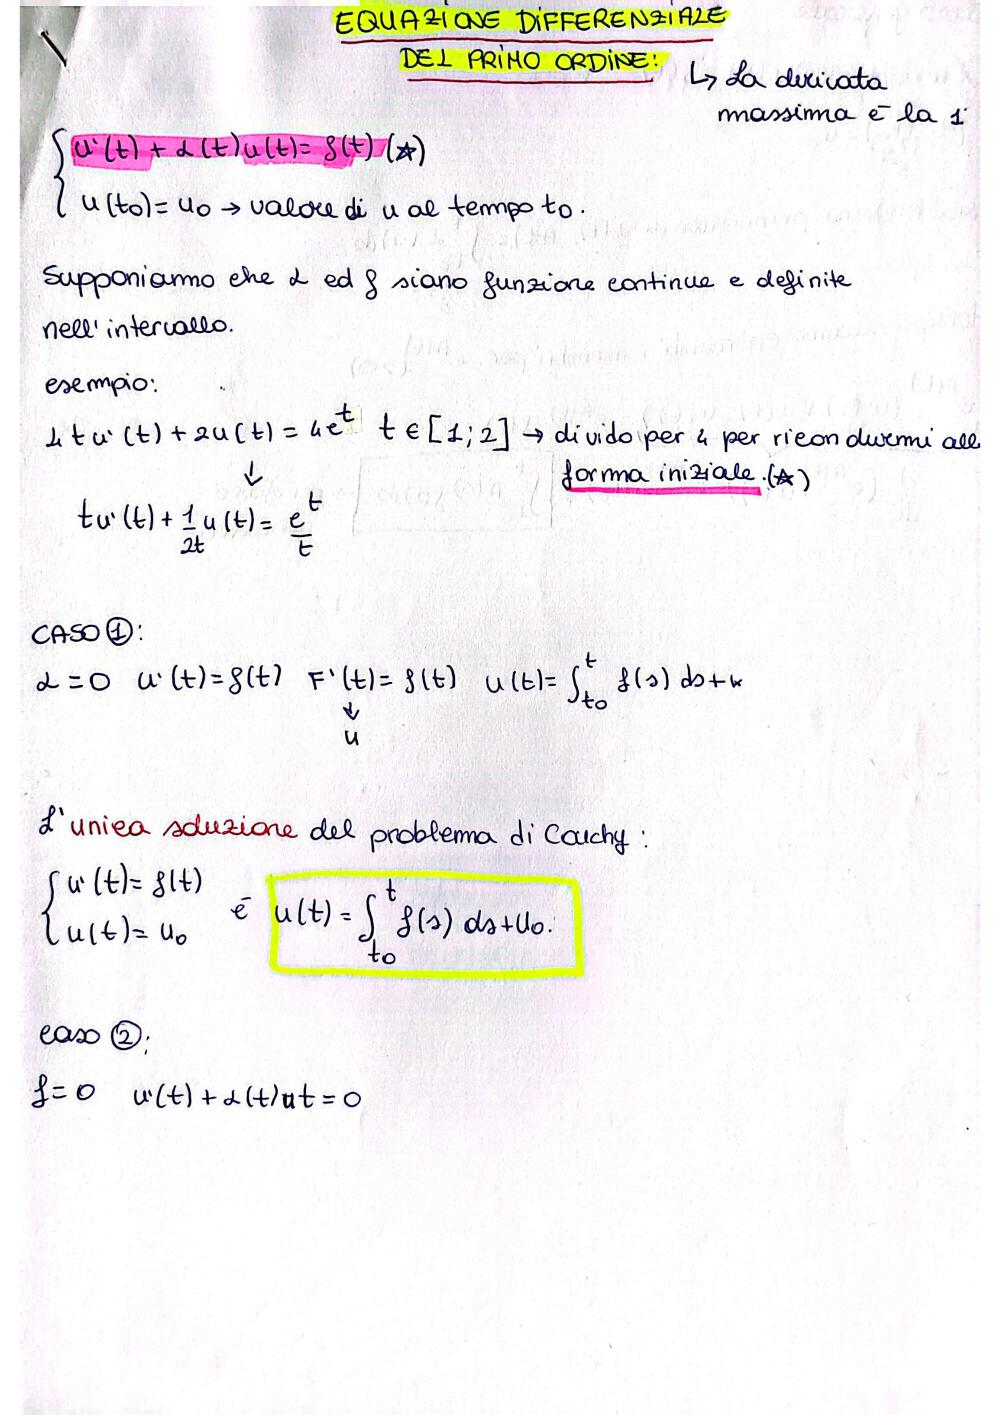 EQUAZIONE DIFFERENZIALE
DEL PRIMO ORDINE:
↳ La derivata
massima é la 1ª
{ u'(t) + α(t)u(t) = f(t) (☆)
u(t0) = u0 → valore di u al tempo t0.
Supponiamo che α ed f siano funzione continue e definite
nell'intervallo.
esempio:
4tu'(t) + 2u(t) = 4e^t t ∈ [1;2] → divido per 4 per ricondurmi alla
↓ forma iniziale.(☆)
tu'(t) + 1/2t u(t) = e^t/t
CASO ①:
α = 0 u'(t) = f(t) F'(t) = f(t) u(t) = ∫_t0^t f(s) ds + k
↓
u
L'unica soluzione del problema di Cauchy:
{ u'(t) = f(t)
u(t) = u0 é u(t) = ∫_t0^t f(s) ds + u0.
caso ②:
f = 0 u'(t) + α(t)ut = 0